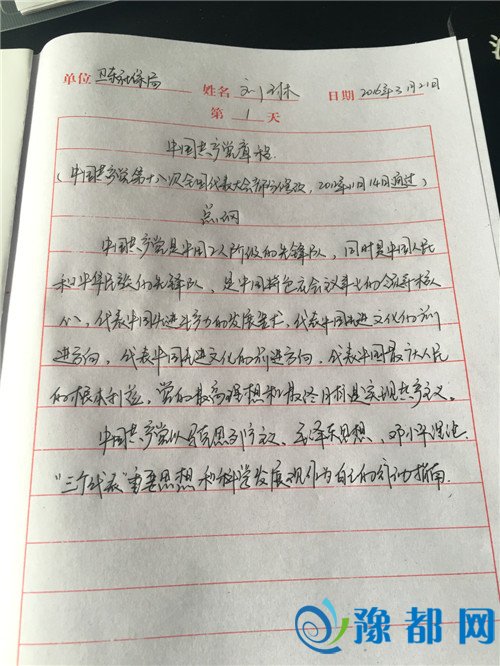 单位 卫东社保局 姓名 刘 日期 2016年3月21日
第 1 天
中国共产党章程
(中国共产党第十八次全国代表大会部分修改,2012年11月14日通过)
总纲
中国共产党是中国工人阶级的先锋队,同时是中国人民
和中华民族的先锋队,是中国特色社会主义事业的领导核
心,代表中国先进生产力的发展要求,代表中国先进文化的前
进方向,代表中国先进文化的前进方向,代表中国最广大人民
的根本利益。党的最高理想和最终目标是实现共产主义。
中国共产党以马克思列宁主义、毛泽东思想、邓小平理论、
“三个代表”重要思想和科学发展观作为自己的行动指南.
豫都网